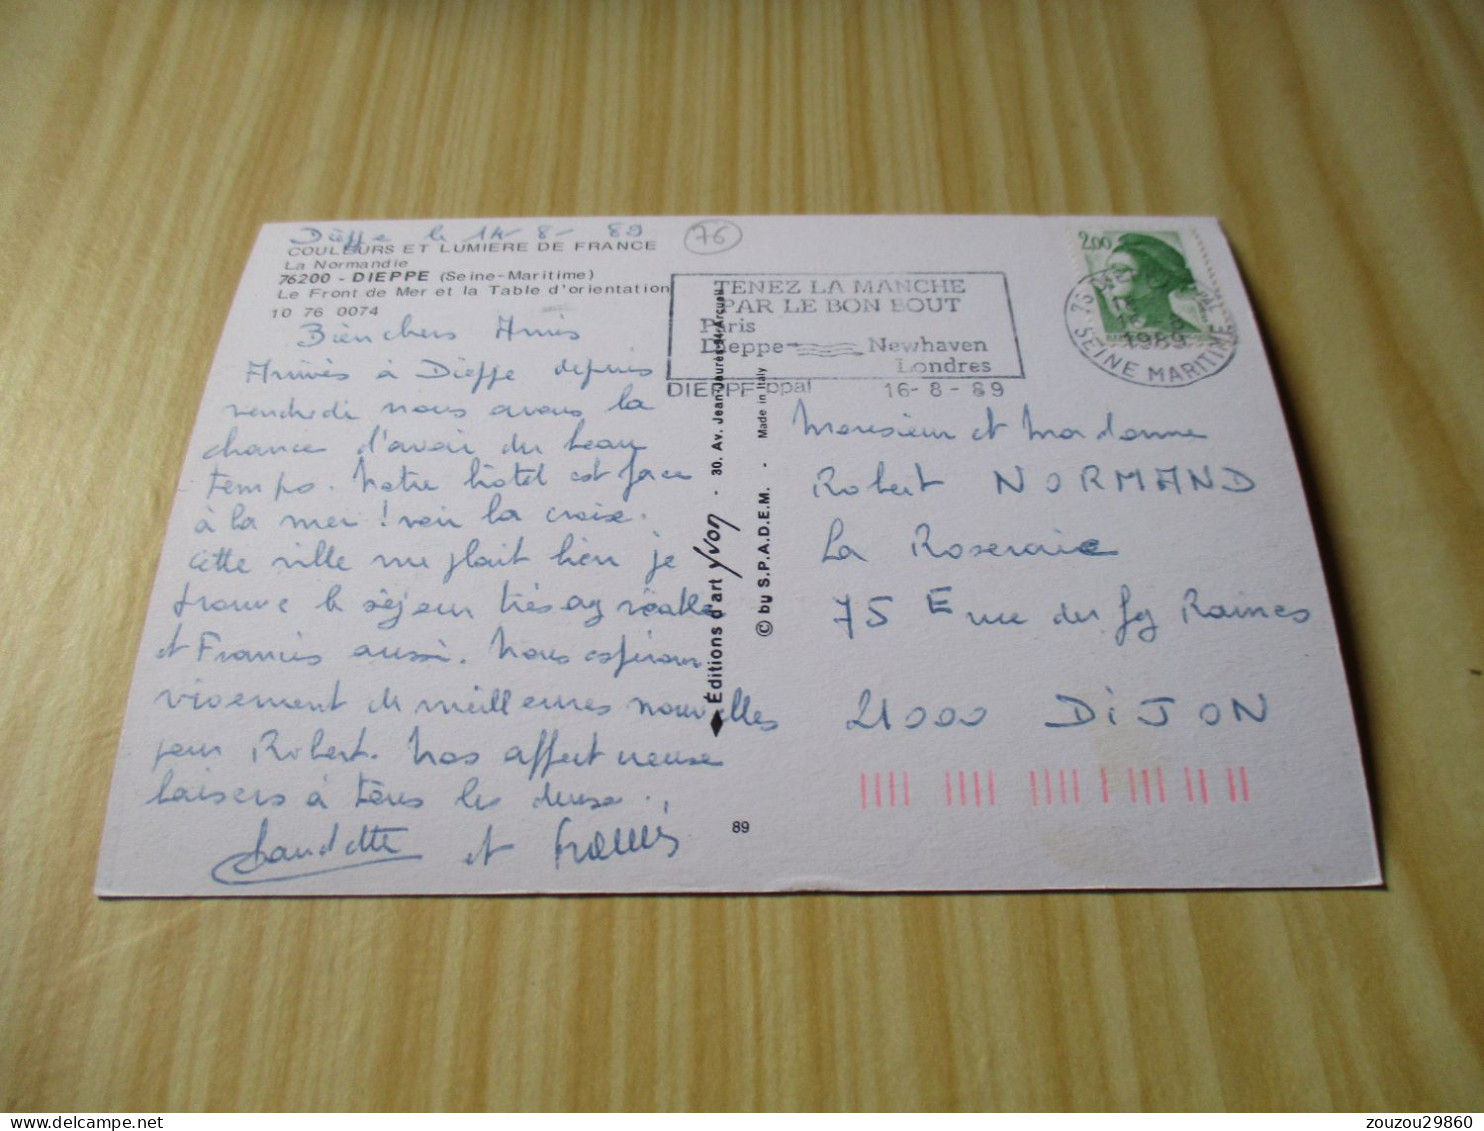 Dieppe le 14-8-89
COULEURS ET LUMIERE DE FRANCE
La Normandie
76200 - DIEPPE (Seine-Maritime)
Le Front de Mer et la Table d'orientation
10 76 0074
76
Bien chers Amis
Arrivés à Dieppe depuis
vendredi nous avons la
chance d'avoir du beau
temps. Notre hôtel est face
à la mer ! voir la croix.
cette ville me plait bien je
trouve le séjour très agréable
et Francis aussi. Nous espérons
vivement de meilleures nouvelles
pour Robert. Nos affectueux
baisers à tous les deux.
Claudette et Francis
Éditions d'art Yvon - 30, Av. Jean-Jaurès-94-Arcueil
© by S.P.A.D.E.M. - Made in Italy
89
TENEZ LA MANCHE
PAR LE BON BOUT
Paris
Dieppe Newhaven
Londres
DIEPPE ppal 16-8-89
2,00
1989
SEINE MARITIME
Monsieur et Madame
Robert NORMAND
La Roseraie
75 E rue du fg Raines
21000 DIJON
zouzou29860